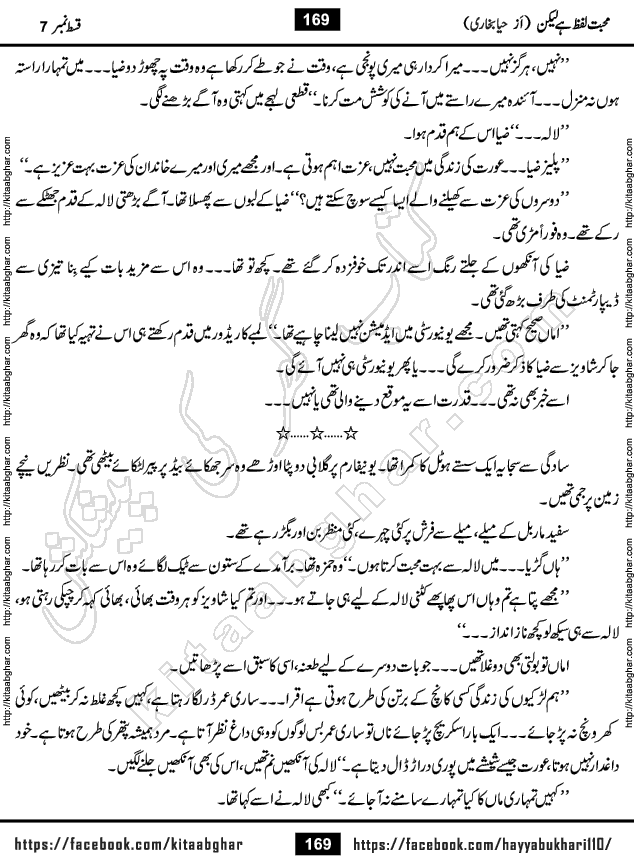 محبت لفظ ہے لیکن (از حیا بخاری)
169
قسط نمبر 7
’’نہیں، ہرگز نہیں۔۔۔میرا کردار ہی میری پونجی ہے، وقت نے جو طے کر رکھا ہے وہ وقت پہ چھوڑ دو ضیا۔۔۔میں تمہارا راستہ
ہوں نہ منزل۔۔۔آئندہ میرے راستے میں آنے کی کوشش مت کرنا۔‘‘ قطعی لہجے میں کہتی وہ آگے بڑھنے لگی۔
’’لالہ۔۔۔‘‘ ضیا اس کے ہم قدم ہوا۔
’’پلیز ضیا۔۔۔عورت کی زندگی میں محبت نہیں، عزت اہم ہوتی ہے۔ اور مجھے میری اور میرے خاندان کی عزت بہت عزیز ہے۔‘‘
’’دوسروں کی عزت سے کھیلنے والے ایسا کیسے سوچ سکتے ہیں؟‘‘ ضیا کے لبوں سے پھسلا تھا۔ آگے بڑھتی لالہ کے قدم جھٹکے سے
رکے تھے۔ وہ فوراً مڑی تھی۔
ضیا کی آنکھوں کے جلتے رنگ اسے اندر تک خوفزدہ کر گئے تھے۔ کچھ تو تھا۔۔۔وہ اس سے مزید بات کیے بِنا تیزی سے
ڈیپارٹمنٹ کی طرف بڑھ گئی تھی۔
’’اماں صحیح کہتی تھیں۔ مجھے یونیورسٹی میں ایڈمیشن نہیں لینا چاہیے تھا۔‘‘ لمبے کاریڈور میں قدم رکھتے ہی اس نے تہیہ کیا تھا کہ وہ گھر
جا کر شاویز سے ضیا کا ذکر ضرور کرے گی۔۔۔یا پھر یونیورسٹی ہی نہیں آئے گی۔
اسے خبر بھی نہ تھی۔۔۔قدرت اسے یہ موقع دینے والی تھی یا نہیں۔۔۔
☆......☆......☆
سادگی سے سجا یہ ایک سستے ہوٹل کا کمرا تھا۔ یونیفارم پر گلابی دوپٹا اوڑھے وہ سر جھکائے بیڈ پر پیر لٹکائے بیٹھی تھی۔ نظریں نیچے
زمین پر جمی تھیں۔
سفید ماربل کے میلے، میلے سے فرش پر کئی چہرے، کئی منظر بن اور بگڑ رہے تھے۔
’’ہاں گڑیا۔۔۔میں لالہ سے بہت محبت کرتا ہوں۔‘‘ وہ حمزہ تھا۔ برآمدے کے ستون سے ٹیک لگائے وہ اس سے بات کر رہا تھا۔
’’مجھے پتا ہے تم وہاں اس پھاپھے کٹنی لالہ کے لیے ہی جاتے ہو۔۔۔اور تم کیا شاویز کو ہر وقت بھائی، بھائی کہہ کر چپکی رہتی ہو،
لالہ سے ہی سیکھ لو کچھ ناز انداز۔۔۔‘‘
اماں تو بولتی بھی دوغلا تھیں۔۔۔جو بات دوسرے کے لیے طعنہ، اسی کا سبق اسے پڑھاتیں۔
’’ہم لڑکیوں کی زندگی کسی کانچ کے برتن کی طرح ہوتی ہے اقرا۔۔۔ساری عمر ڈر لگا رہتا ہے، کہیں کچھ غلط نہ کر بیٹھیں، کوئی
کھرونچ نہ پڑ جائے۔۔۔ایک بار اسکریچ پڑ جائے ناں تو ساری عمر بس لوگوں کو وہی داغ نظر آتا ہے۔ مرد ہمیشہ پتھر کی طرح ہوتا ہے۔ خود
داغدار نہیں ہوتا، عورت جیسے شیشے میں پوری دراڑ ڈال دیتا ہے۔‘‘ لالہ کی آنکھیں نم تھیں، اس کی بھی آنکھیں جلنے لگیں۔
’’کہیں تمہاری ماں کا کیا تمہارے سامنے نہ آ جائے۔‘‘ کبھی لالہ نے اسے کہا تھا۔
https://facebook.com/kitaabghar
169
https://facebook.com/hayyabukhari110/
http://kitaabghar.com
کتاب گھر کی پیشکش
kitaabghar.com